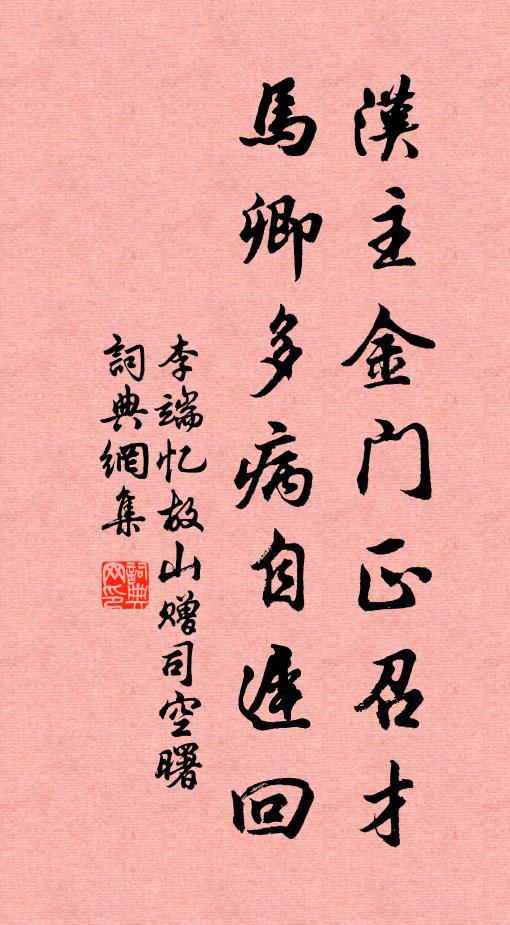 漢主金门正召才
馬卿多病自遲回
李端忆故山赠司空曙
詞典網集
詞典网印